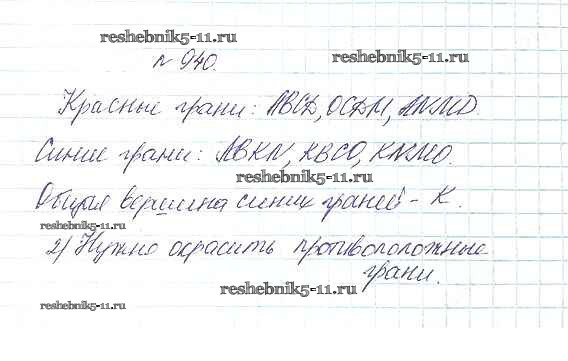 reshebnik5-11.ru
reshebnik5-11.ru
№ 940.
Красные грани: ABCD, OCDM, ANMD.
Синие грани: ABKN, KBCO, KNMO.
reshebnik5-11.ru
Общая вершина синих граней - K.
reshebnik5-11.ru
2) Нужно окрасить противоположные
грани.
reshebnik5-11.ru
reshebnik5-11.ru